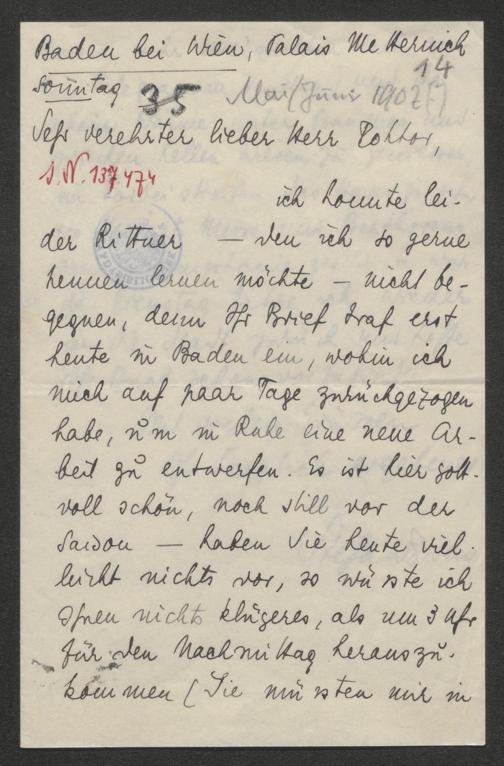 Baden bei Wien, Palais Metternich
14
Sonntag 35 Mai/Juni 1907(?)
Sehr verehrter lieber Herr Doktor,
J.N. 137474
ich konnte lei-
der Rittner — den ich so gerne
kennen lernen möchte — nicht be-
gegnen, denn Ihr Brief traf erst
heute in Baden ein, wohin ich
mich auf paar Tage zurückgezogen
habe, um in Ruhe eine neue Ar-
beit zu entwerfen. Es ist hier gott-
voll schön, noch still vor der
Saison — haben Sie heute viel-
leicht nichts vor, so wüsste ich
Ihnen nichts klügeres, als um 3 Uhr
für den Nachmittag herauszu-
kommen (Sie müssten mir in